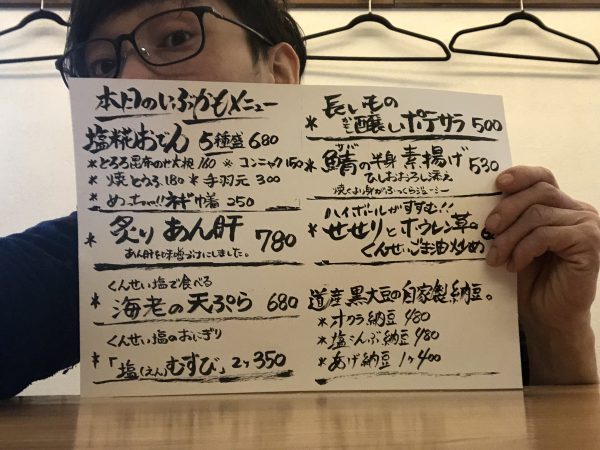 本日のいぶかもメニュー
塩糀おでん 5種盛 680
*とろろ昆布のせ大根 160 *コンニャク 150
*焼とうふ 180 *手羽元 300
*めっちゃ!!ネギ巾着 250
*炙りあん肝 780
あん肝を味噌づけにしました。
くんせい塩で食べる
海老の天ぷら 680
くんせい塩のおにぎり
*「塩(えん)むすび」2ヶ350
長いもの
*醸しポテサラ 500
*鯖の半身素揚げ 530
サバ
ひしおおろし添え
焼くより身がふっくらジューシー
ハイボールがすすむ!!
*せせりとホウレン草の
くんせいごま油炒め
道産黒大豆の自家製納豆。
*オクラ納豆 480
*塩こんぶ納豆 480
*あげ納豆 1ヶ400